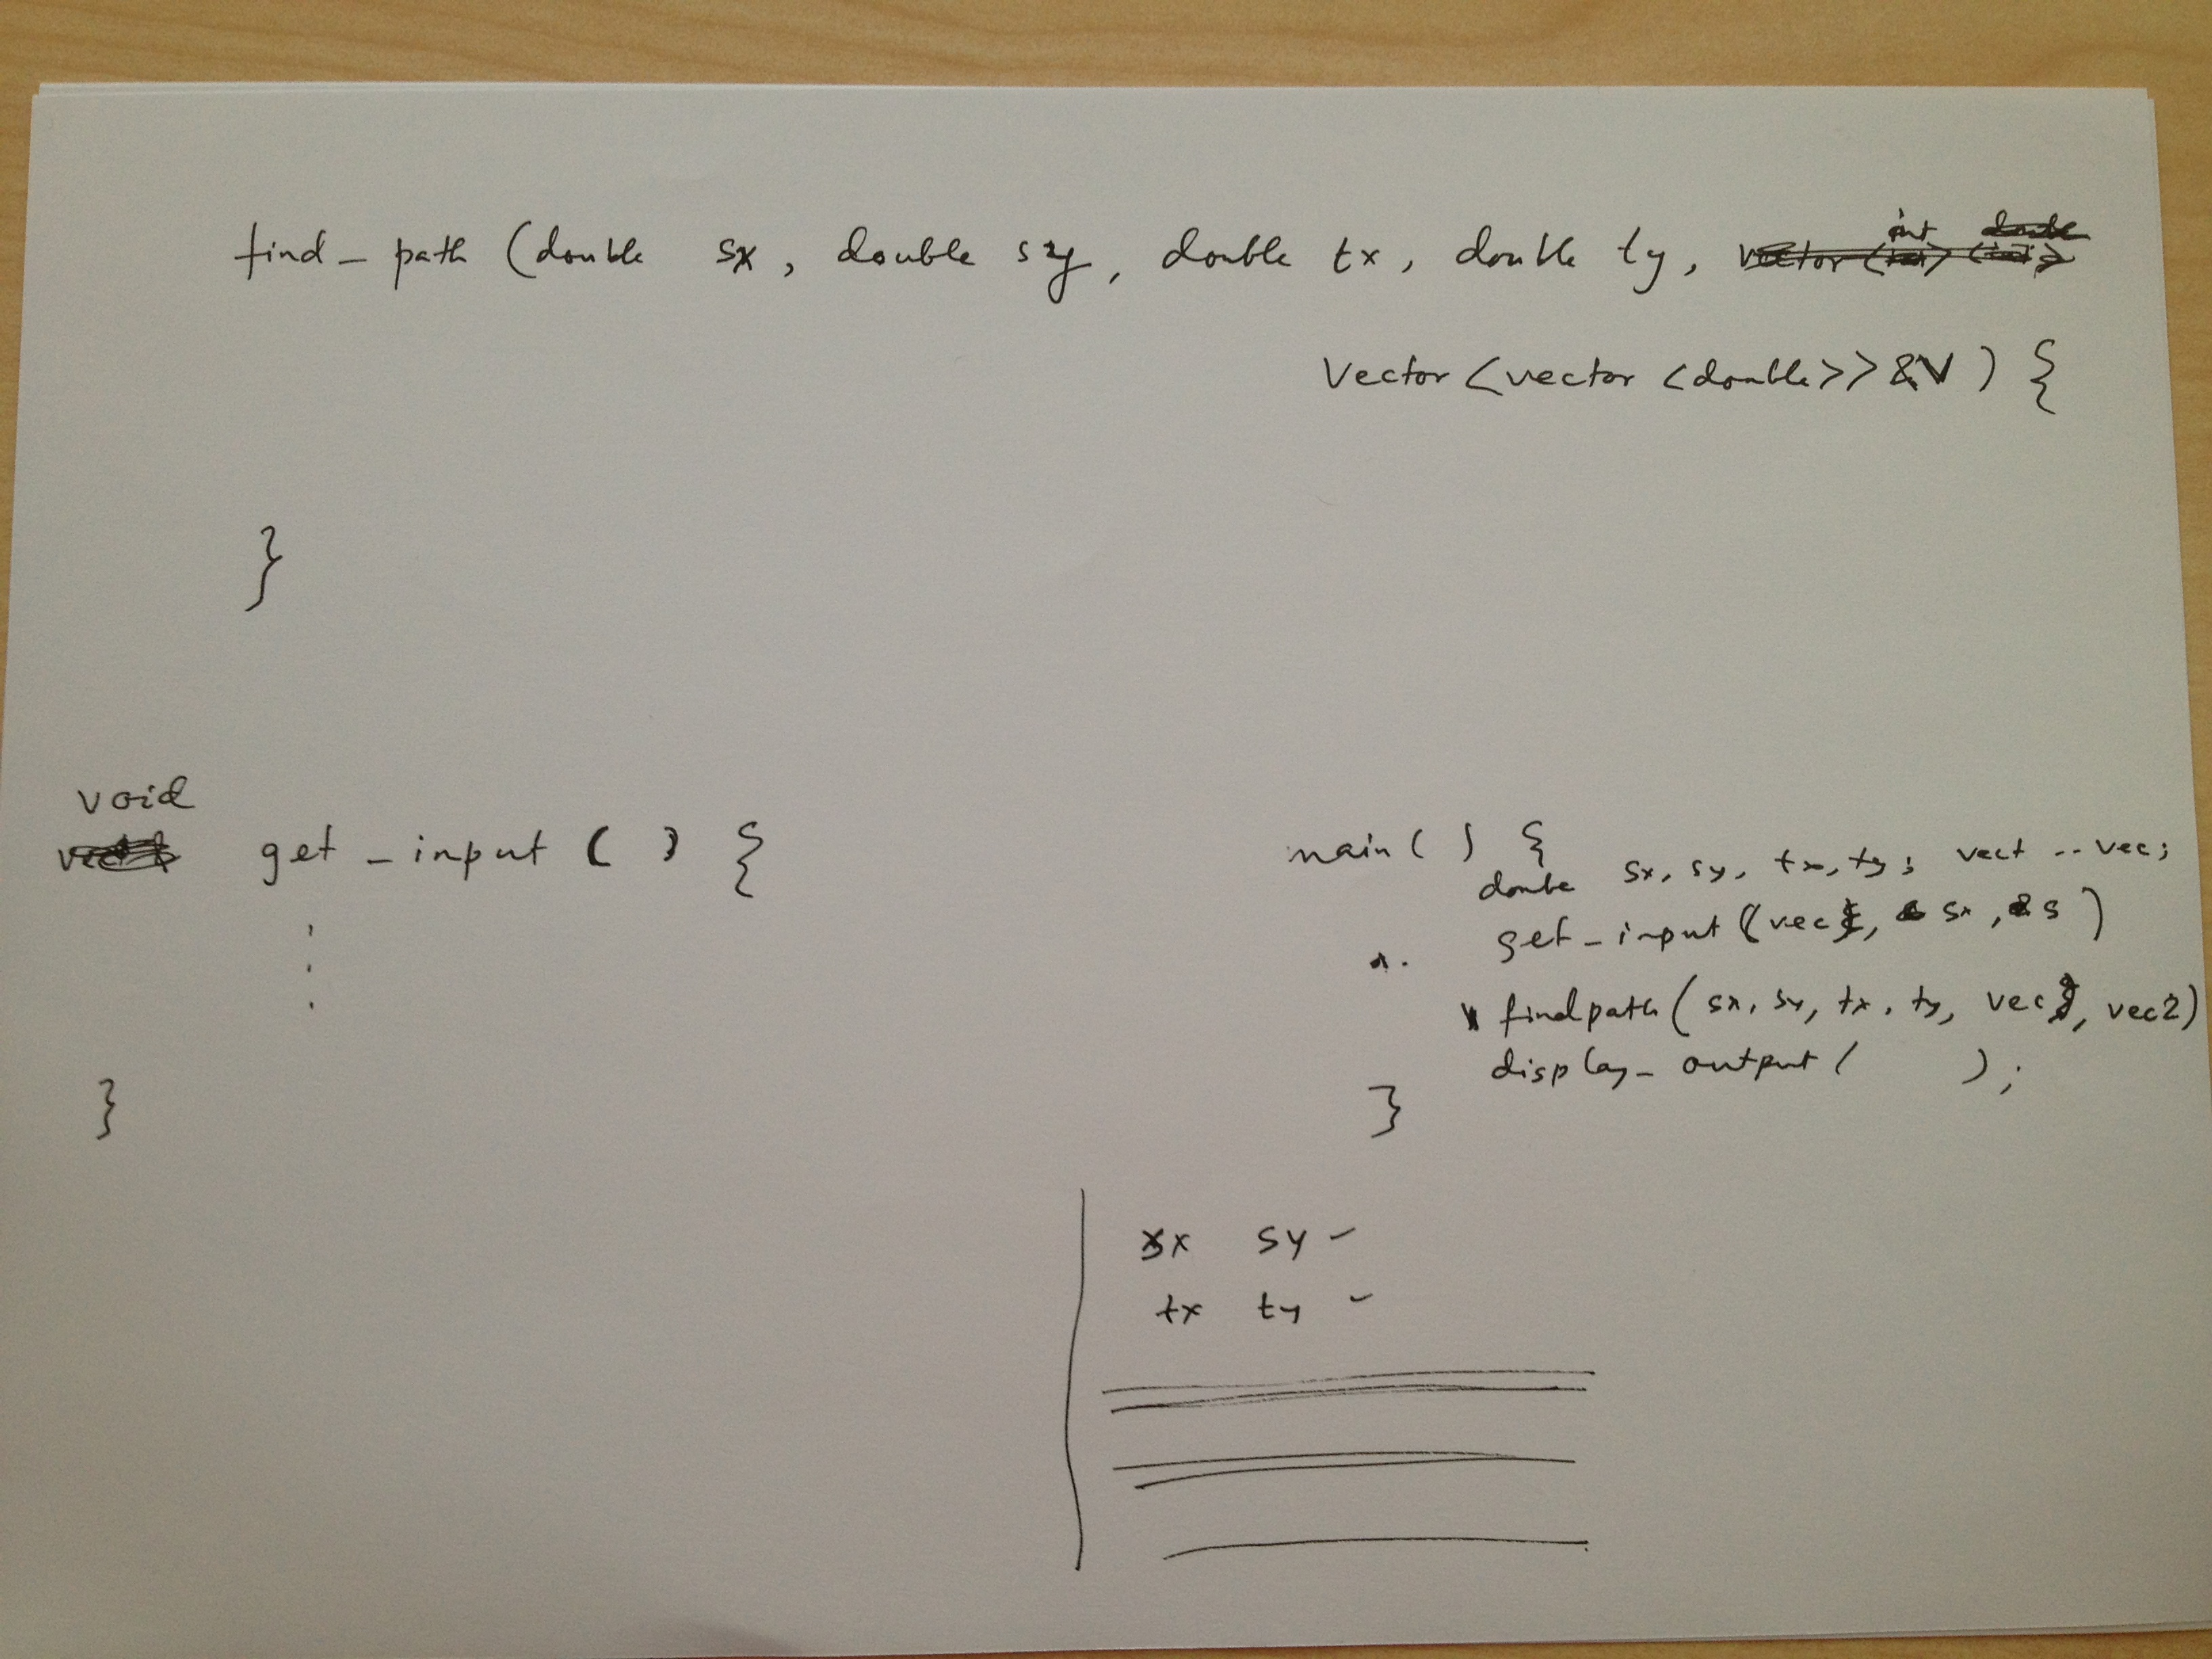 find_path (double sx, double sy, double tx, double ty,
int double
vector
Vector <vector <double>> &V ) {
}
void
get_input ( ) {
}
main ( ) {
double sx, sy, tx, ty; vect .. vec;
get_input (vec, sx, s )
findpath ( sx, sy, tx, ty, vec, vec2)
display_output ( );
}
sx sy
tx ty